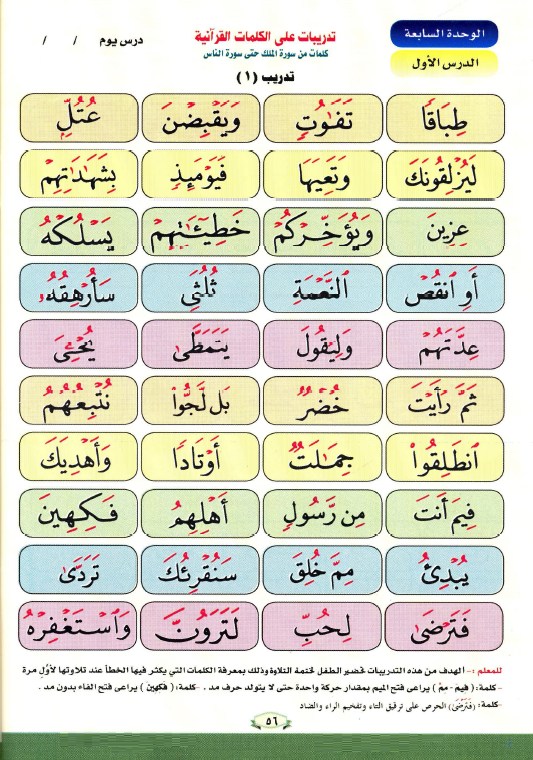 الوحدة السابعة
الدرس الأول
تدريبات على الكلمات القرآنية
كلمات من سورة الملك حتى سورة الناس
درس يوم / /
تدريب (١)
طِبَاقًا تَفَٰوُتٍ وَيَقْبِضْنَ عُتُلٍّ
لَيُزْلِقُونَكَ وَتَعِيَهَا فَيَوْمَئِذٍ بِشَهَٰدَٰتِهِمْ
عِزِينَ وَيُؤَخِّرْكُمْ خَطِيٓـَٰٔتِهِمْ يَسْلُكْهُ
أَوِ ٱنقُصْ ٱلنَّعْمَةِ ثُلُثَىِ سَأُرْهِقُهُۥ
عِدَّتَهُمْ وَلِيَقُولَ يَتَمَطَّىٰٓ يُحْـِۧىَ
ثَمَّ رَأَيْتَ خُضْرٌ بَل لَّجُّوا۟ نُتْبِعُهُمُ
ٱنطَلِقُوٓا۟ جِمَٰلَتٌ أَوْتَادًا وَأَهْدِيَكَ
فِيمَ أَنتَ مِن رَّسُولٍ أَهْلِهِمُ فَكِهِينَ
يُبْدِئُ مِمَّ خُلِقَ سَنُقْرِئُكَ تَرَدَّىٰٓ
فَتَرْضَىٰٓ لِحُبِّ لَتَرَوُنَّ وَٱسْتَغْفِرْهُ
للمعلم :- الهدف من هذه التدريبات تحضير الطفل لختمة التلاوة وذلك بمعرفة الكلمات التي يكثر فيها الخطأ عند تلاوتها لأول مرة
- كلمة: ( فيمَ - ممَّ ) يراعى فتح الميم بمقدار حركة واحدة حتى لا يتولد حرف مد . - كلمة: ( فكهين ) يراعى فتح الفاء بدون مد .
- كلمة: (فَتَرْضَىٰ) الحرص على ترقيق التاء وتفخيم الراء والضاد
٥٦